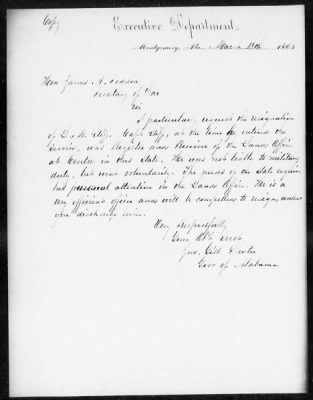 Copy
Executive Department.
Montgomery, Ala. 1863
Hon James A. Seddon
Secretary of War
Sir
I particular, request the resignation
of Capt at the time he entered the
service, was Register and Receiver of the Lands Office
at Centre in this State. He was not liable to military
duty, but went voluntarily. The needs of the State require
his personal attention in the Lands Office. He is a
very efficient officer and will be compelled to resign, unless
you discharge him.
Very Respectfully
Your Obt Servt
Jno. Gill Shorter
Govr of Alabama